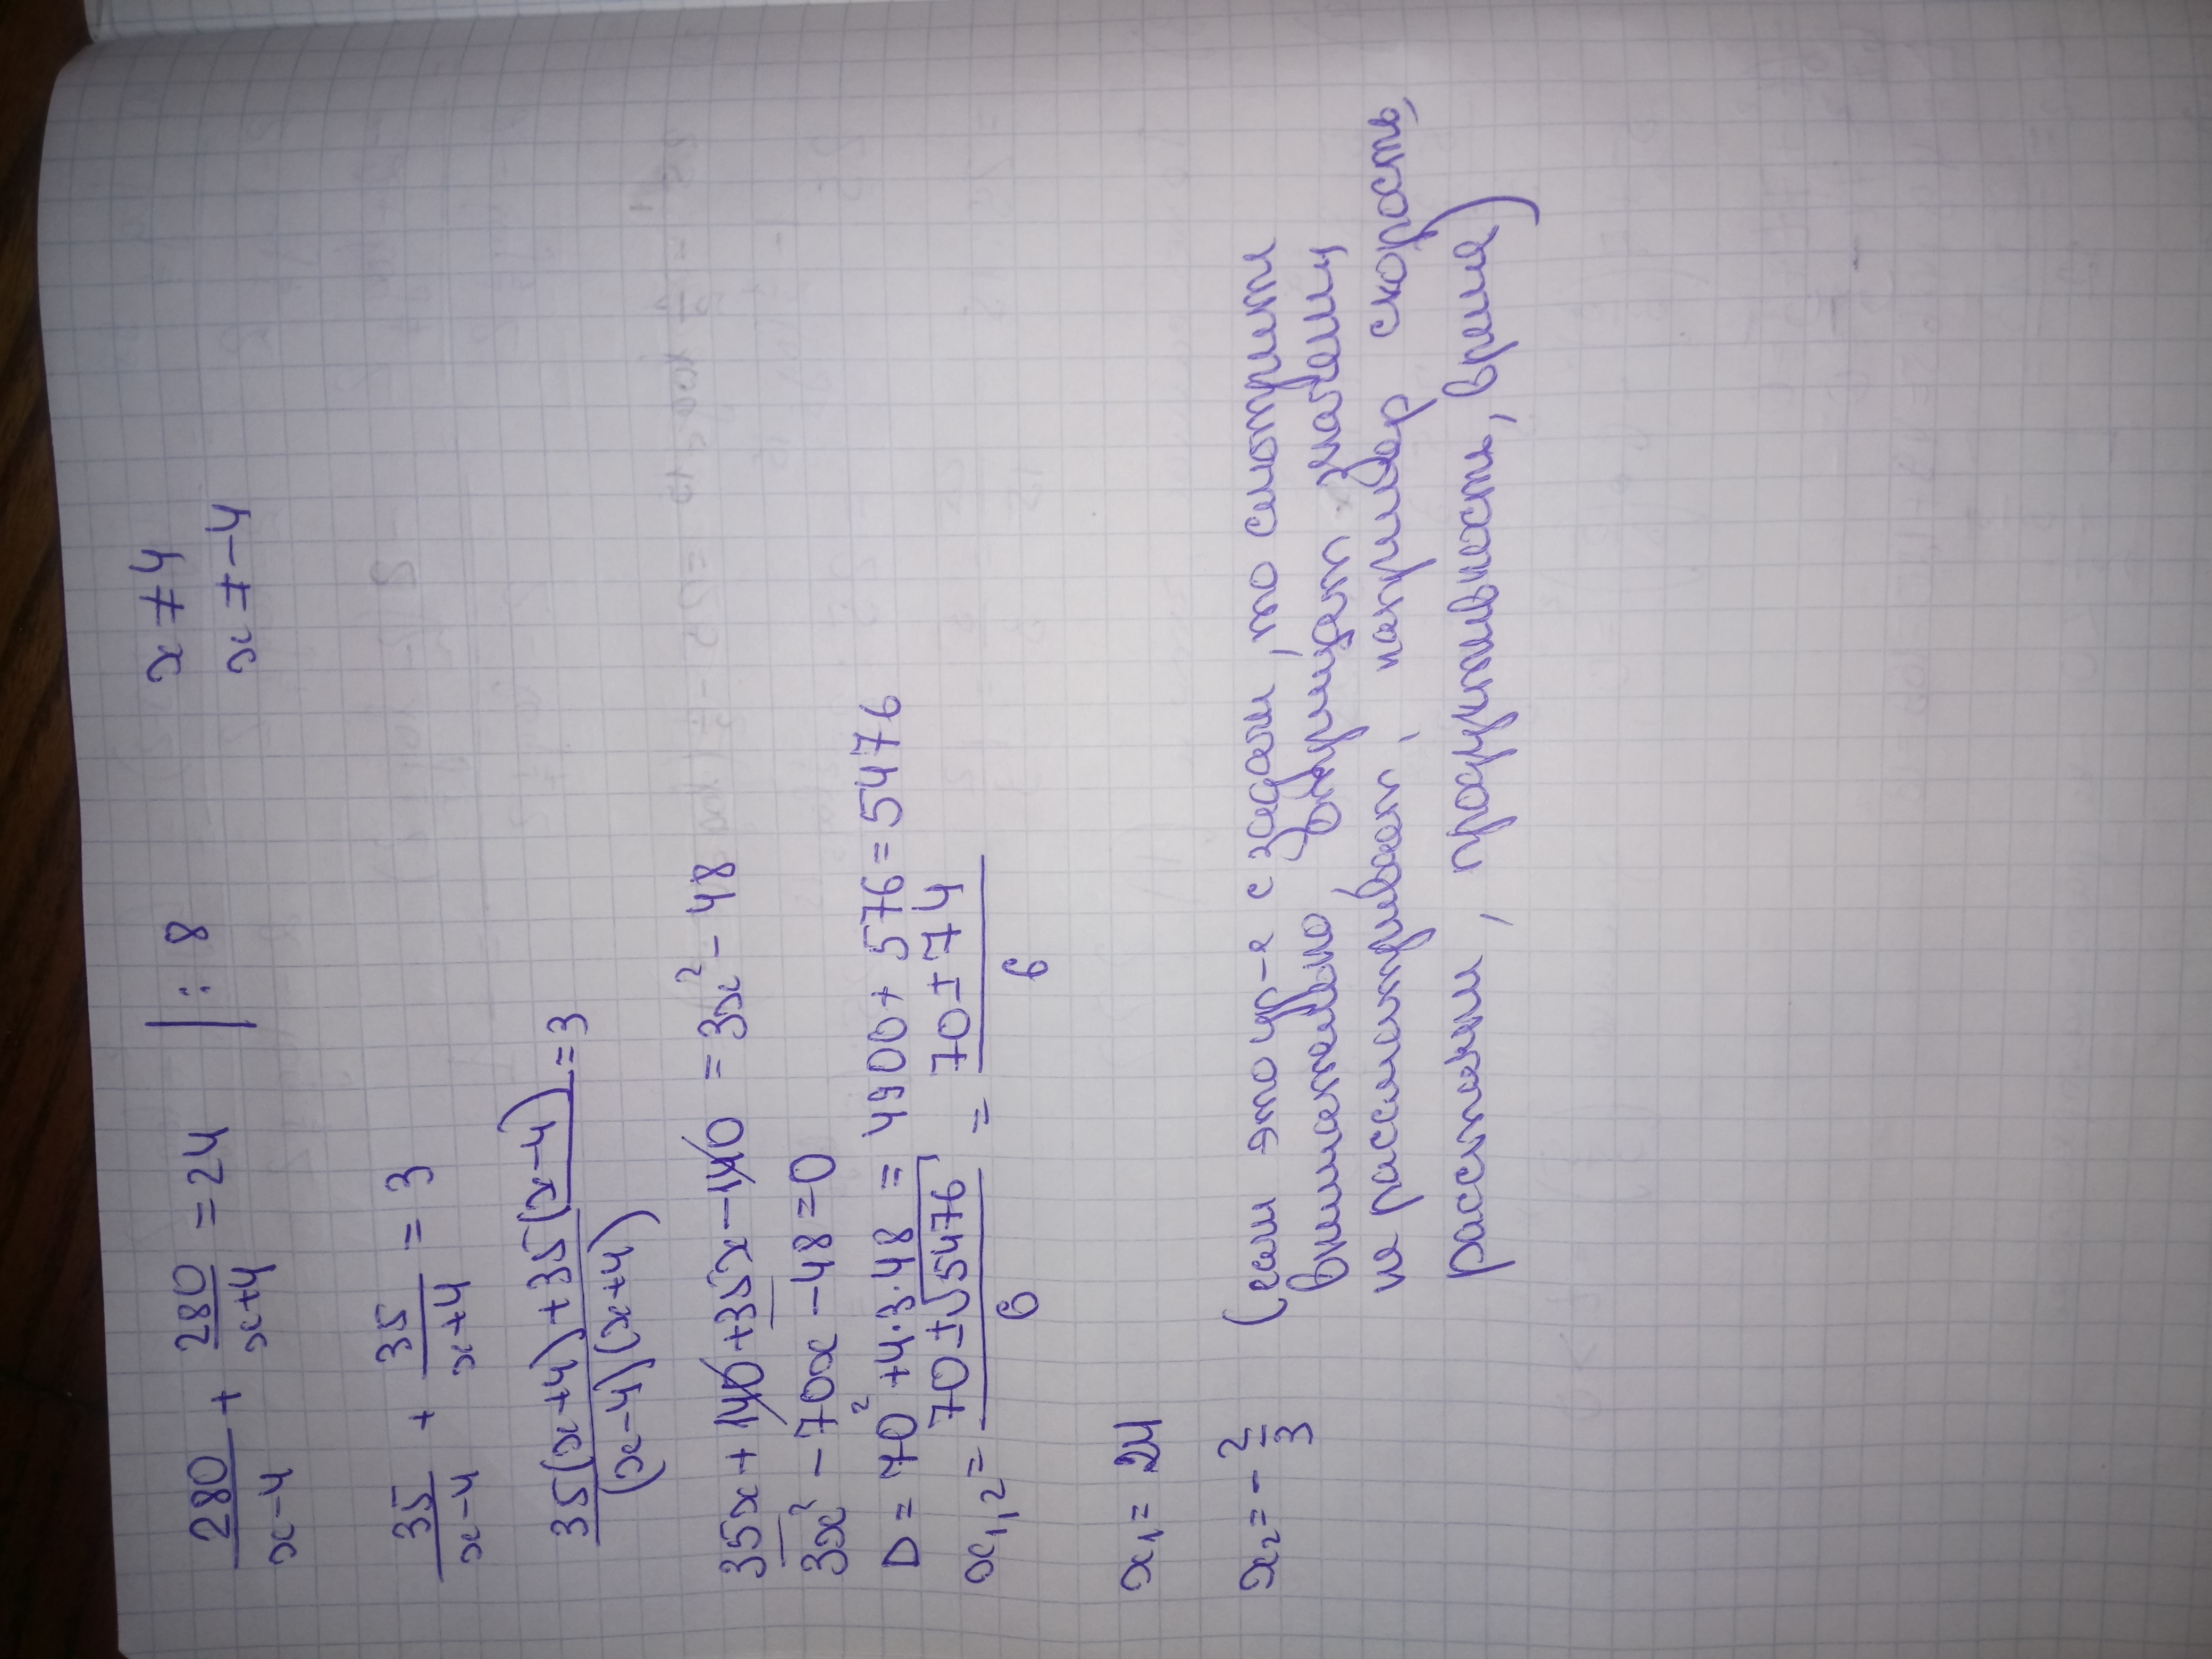 280/(x-4) + 280/(x+4) = 24 | : 8 x ≠ 4
x ≠ -4
35/(x-4) + 35/(x+4) = 3
(35(x+4)+35(x-4))/((x-4)(x+4)) = 3
35x + 140 + 35x - 140 = 3x² - 48
3x² - 70x - 48 = 0
D = 70² + 4·3·48 = 4900 + 576 = 5476
x₁,₂ = (70 ± √5476)/6 = (70 ± 74)/6
x₁ = 24
x₂ = -2/3
(если это ур-е с задач, то смотрим
внимательно, отрицательные значения
не рассматриваем, например скорость,
расстояние,